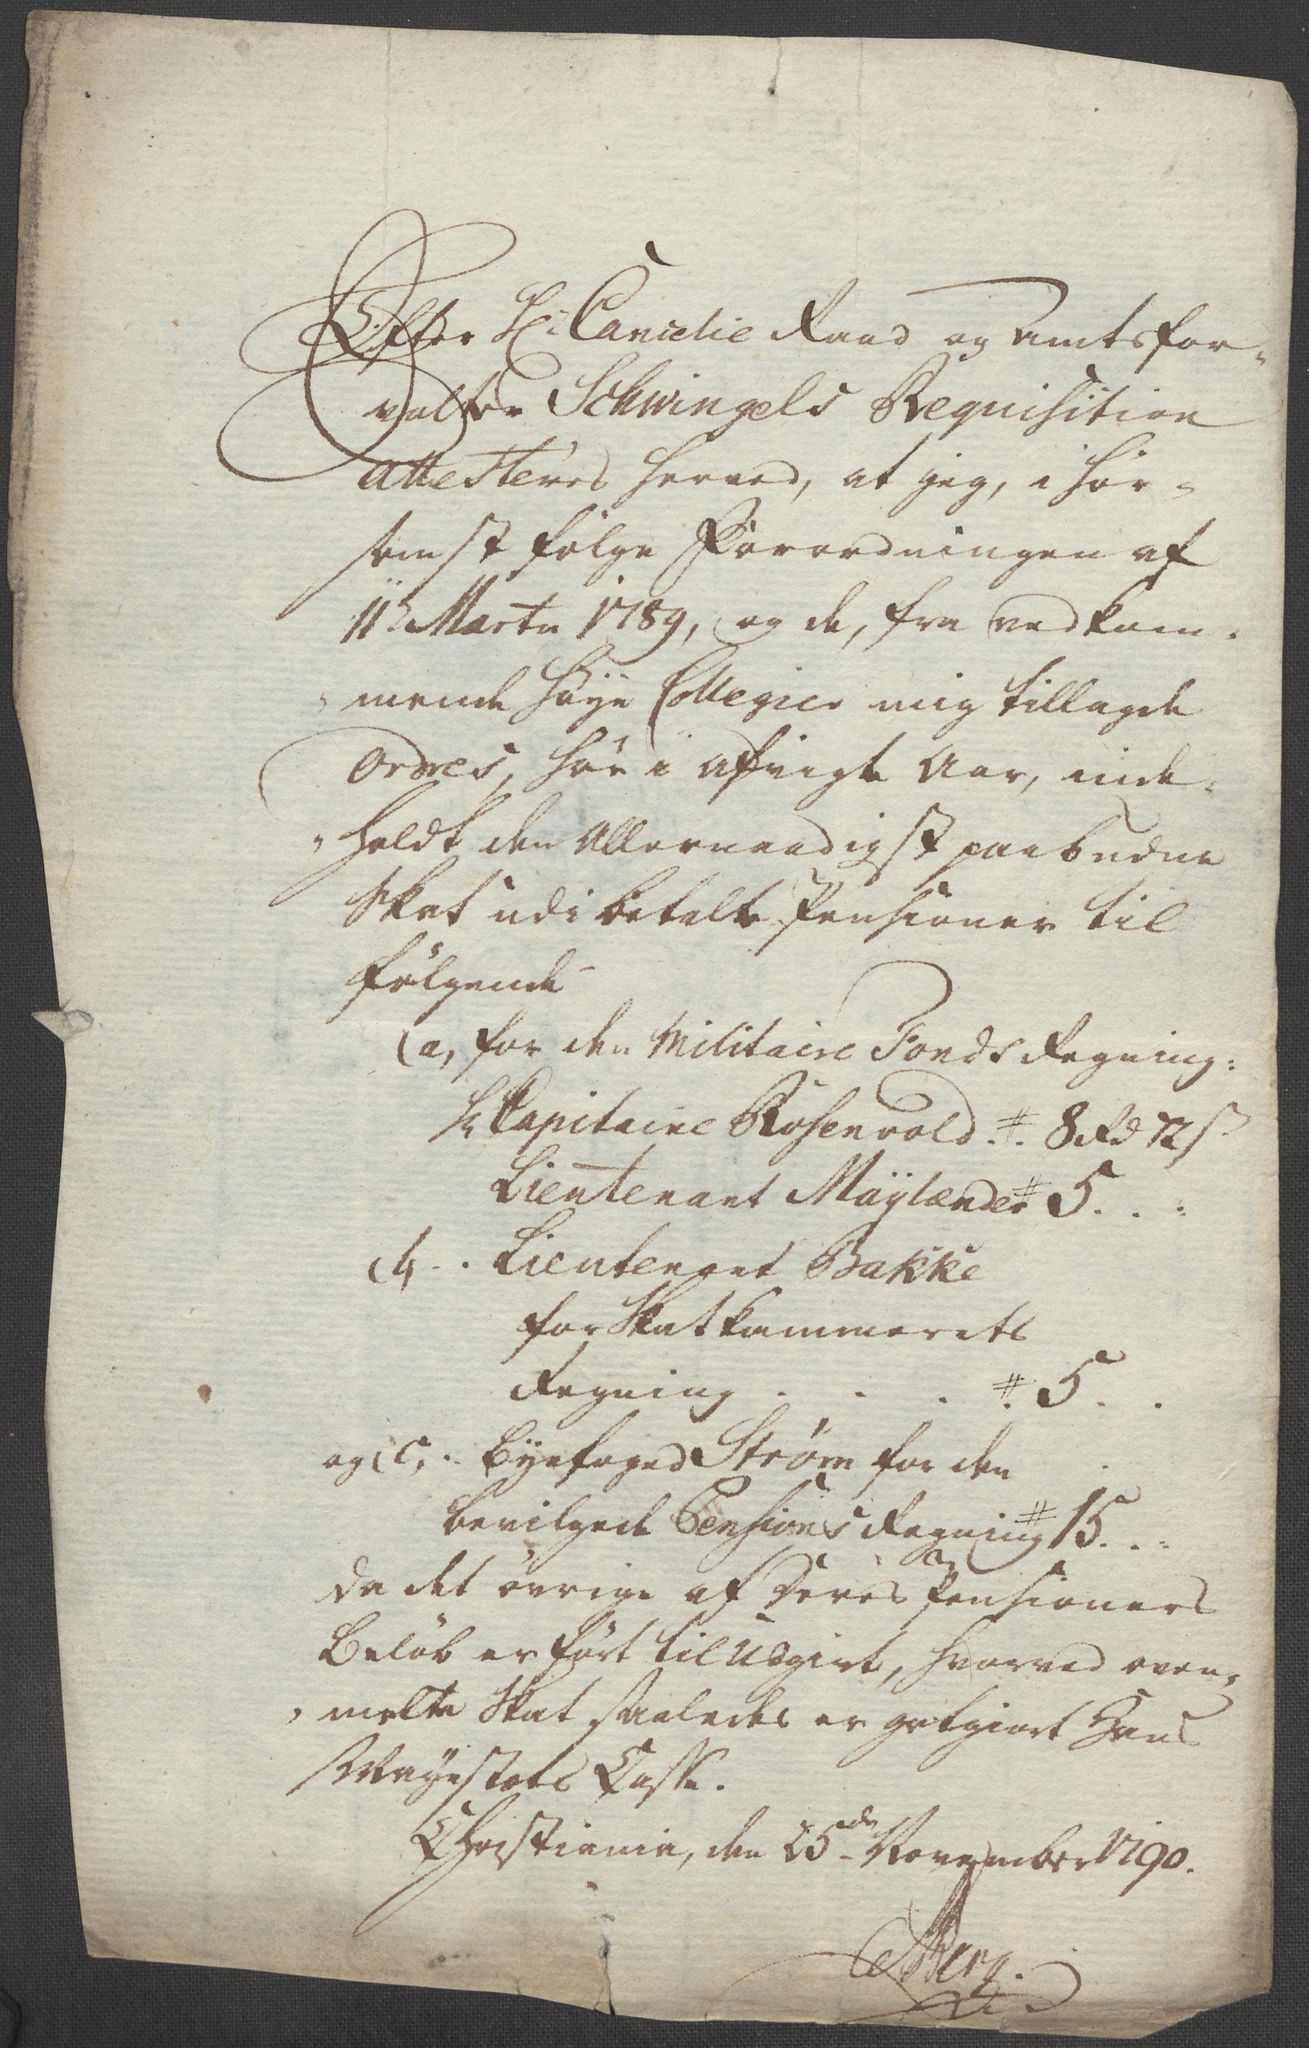 Efter Hr: Cancelie Raad og Amtsfor-
valter Schwingels Requisition
attesteres herved, at jeg, i hør-
somst følge Forordningen af
11te Martii 1789, og de, fra vedkom-
mende høye Collegier mig tillagde
Ordres, har i afvigte Aar, inde-
holdt den Allernaadigst paabudne
Skat udi betalte Pensioner til
følgende
(a, for den Militaire Fonds Regning:
Hr Capitaine Rosenvold. # 8 Rd 72 s
Lieutenant Maylænder # 5. . .
(b . . Lieutenant Bakke
for Skatkammerets
Regning . . . . # 5. .
og (c, . Byefoged Strøm for den
bevilgede Pensions Regning # 15. . .
da det øvrige af deres Pensioners
Beløb er ført til Udgivt, hvorved oven-
melte Skat saaledes er godgiort Hans
Mayestæts Casse.
Christiania, den 25de November 1790.
Berg.